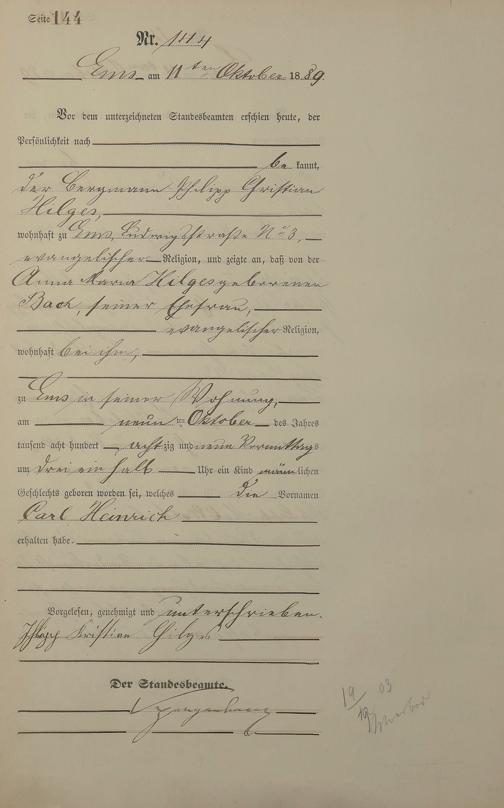 Seite 144
Nr. 144
Ems am 11ten Oktober 1889.
Vor dem unterzeichneten Standesbeamten erschien heute, der
Persönlichkeit nach
be kannt,
der Bergmann Philipp Christian
Hilges,
wohnhaft zu Ems, Ludwigstraße No 3,
evangelischer Religion, und zeigte an, daß von der
Anna Maria Hilges geborenen
Bach, seiner Ehefrau,
evangelischer Religion,
wohnhaft bei ihm,
zu Ems in seiner Wohnung,
am neun ten Oktober des Jahres
tausend acht hundert achtzig und neun Vormittags
um drei ein halb Uhr ein Kind männlichen
Geschlechts geboren worden sei, welches die Vornamen
Carl Heinrich
erhalten habe.
Vorgelesen, genehmigt und unterschrieben.
Philipp Kristian Hilges
Der Standesbeamte.
19/ 03
19